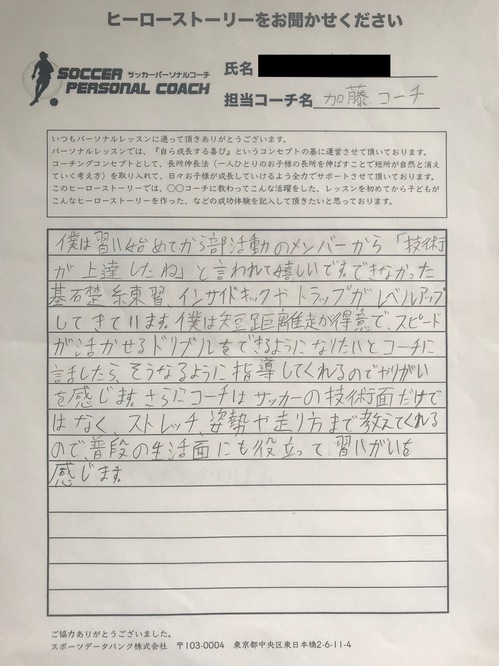 ヒーローストーリーをお聞かせください
SOCCER サッカーパーソナルコーチ
PERSONAL COACH
氏名
担当コーチ名 加藤 コーチ
いつもパーソナルレッスンに通って頂きありがとうございます。
パーソナルレッスンでは、「自ら成長する喜び」というコンセプトの基に運営させて頂いております。
コーチングコンセプトとして、長所伸長法（一人ひとりのお子様の長所を伸ばすことで短所が自然と消え
ていく考え方）を取り入れて、日々お子様が成長していけるよう全力でサポートさせて頂いております。
このヒーローストーリーでは、〇〇コーチに教わってこんな活躍をした、レッスンを初めてから子どもが
こんなヒーローストーリーを作った、などの成功体験を記入して頂きたいと思っております。
僕は習い始めてから部活動のメンバーから「技術
が上達したね」と言われて嬉しいです。できなかった
基礎練習、インサイドキックやトラップがレベルアップ
してきています。僕は短距離走が得意で、スピード
が活かせるドリブルをできるようになりたいとコーチに
話したら、そうなるように指導してくれるのでやりがい
を感じます。さらにコーチはサッカーの技術面だけで
はなく、ストレッチ、姿勢や走り方まで教えてくれる
ので、普段の生活面にも役立って、習いがいを
感じます。
ご協力ありがとうございました。
スポーツデータバンク株式会社 〒103-0004 東京都中央区東日本橋2-6-11-4